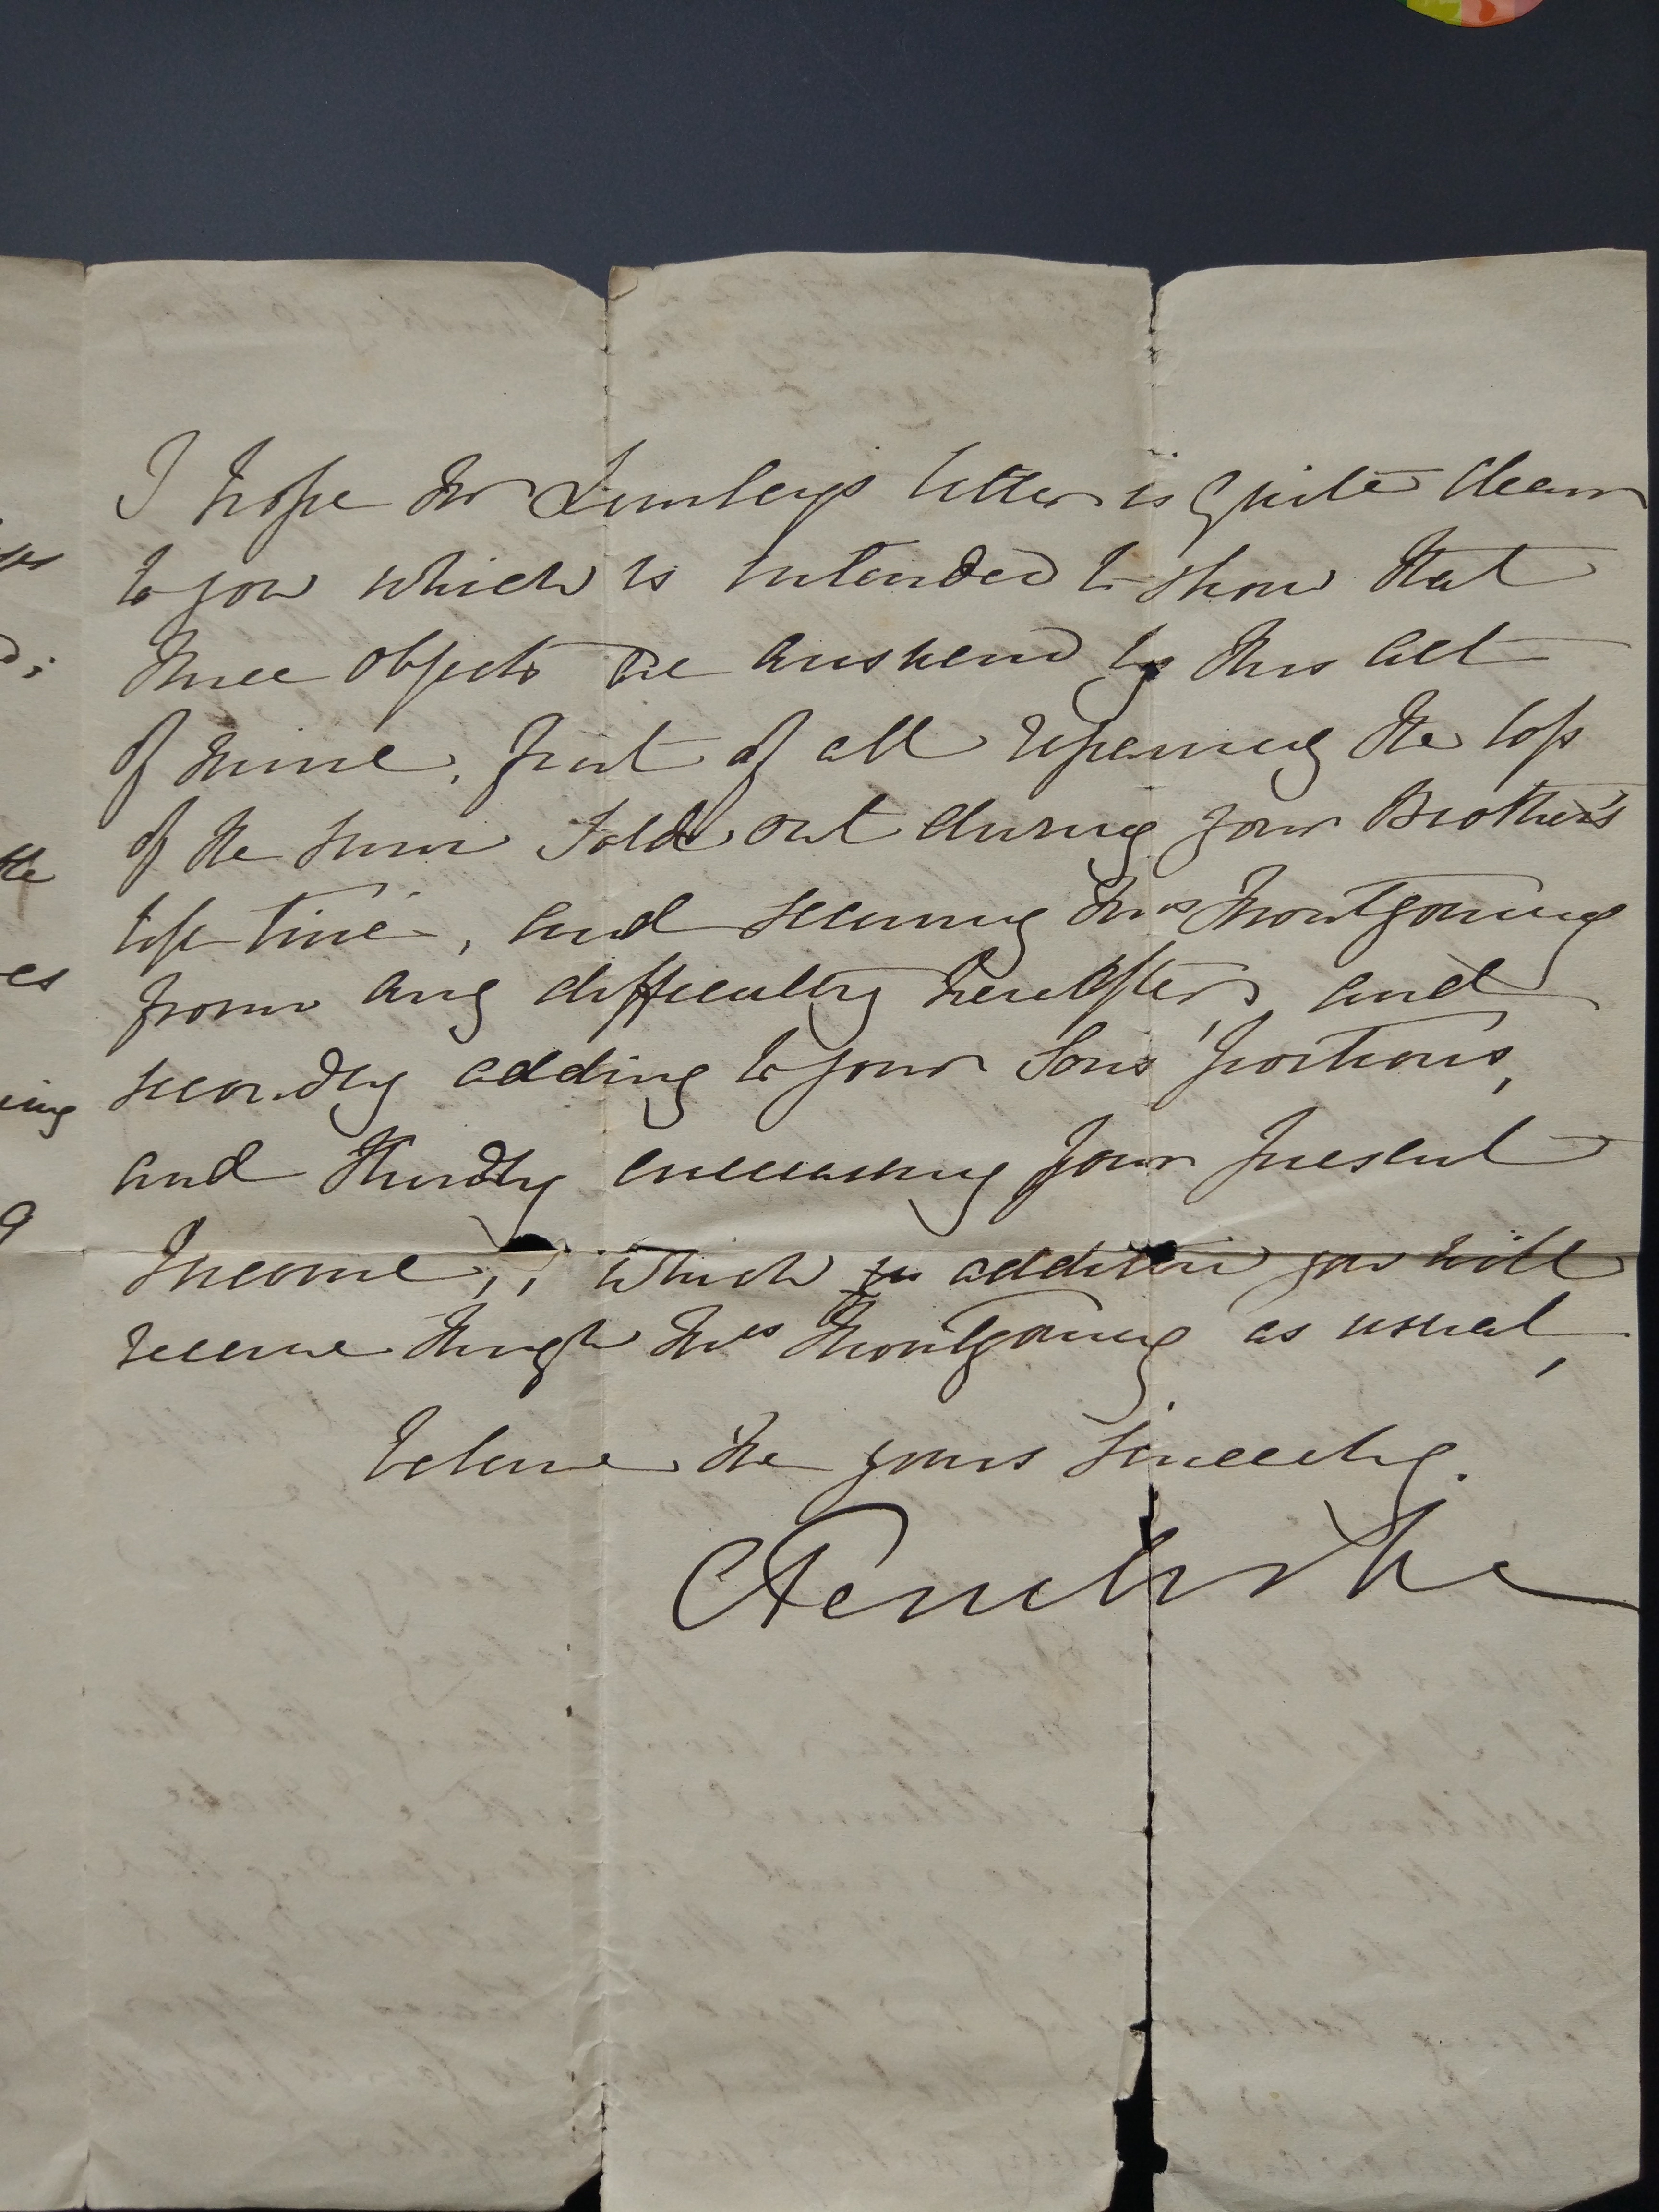 I hope Mr Lumleys letter is quite clear
to you which is intended to show that
three objects are answered by this act
of mine, first of all repairing the loss
of the sum sold out during your Brother's
life time, and securing Mrs Montgomery
from any difficulty hereafter, and
secondly adding to your Sons' portions,
and thirdly encreasing your present
Income, which in addition you will
receive through Mrs Montgomery as usual,
believe me yours sincerely.
the
es
ing